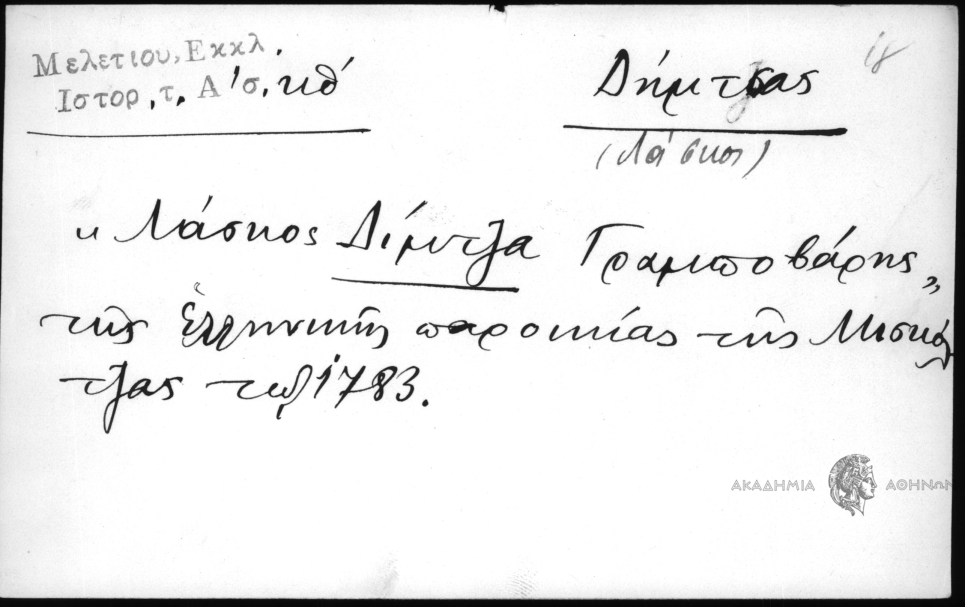 Μελετιου, Εκκλ.
Ιστορ, τ. Α΄ σ. κθ΄
Δήμτσας
(Λάσκος)
« Λάσκος Δίμιτζα Γραμποβάρης „
τῆς Ἑλληνικῆς παροικίας τῆς Μισκόλ
τζας τῷ 1783.
ΑΚΑΔΗΜΙΑ ΑΘΗΝΩΝ